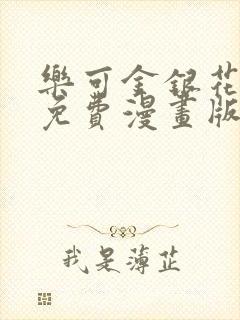 樂可金銀花
免費漫畫版
我是薄芷